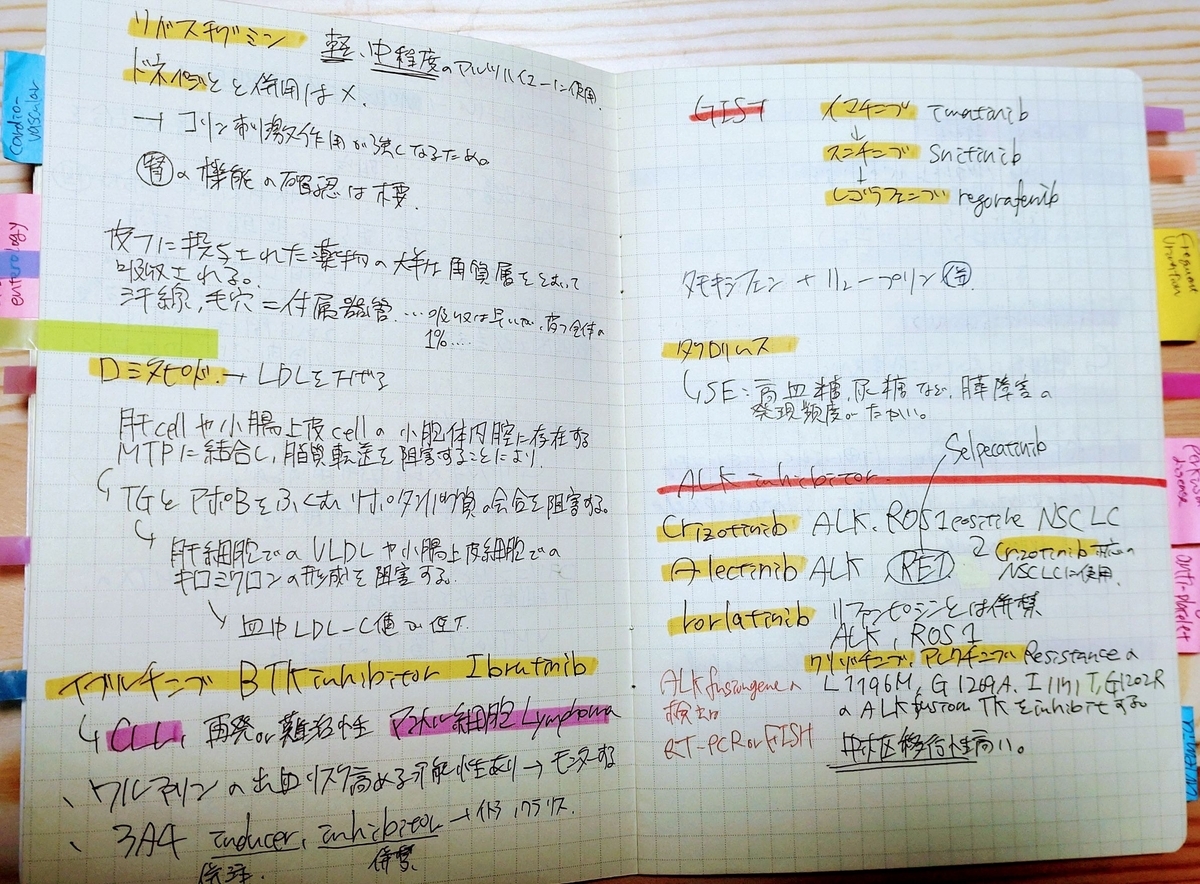 リバスチグミン 軽、中程度のアルツハイマーに使用.
ドネペジルと併用は×.
→ コリン刺激作用が強くなるため。
腎の機能の確認は不要.
皮フに投与された薬物の大半は角質層をとおって
吸収される。
汗線,毛穴=付属器管. …吸収は早いが、皮フ全体の
1%….
ロミタピド. → LDLを下げる
肝cellや小腸上皮cellの小胞体内腔に存在する
MTPに結合し、脂質転送を阻害することにより
TGとアポBをふくむリポタンパク質の会合を阻害する。
肝細胞でのVLDLや小腸上皮細胞での
キロミクロンの形成を阻害する。
血中LDL-C値が低下.
イブルチニブ BTK inhibitor Ibrutinib
CLL, 再発or難治性 マントル細胞 Lymphoma
、ワルファリンの出血リスク高める可能性あり→モニターする
、3A4 inducer, inhibitor →イトラ,クラリス.
併注. 併禁.
GIST イマチニブ imatinib
↓
スニチニブ Snitinib
↓
レゴラフェニブ regorafenib
タモキシフェン + リュープリン 併
タクロリムス
SE: 高血糖,尿糖など、膵障害の
発現頻度がたかい。
Selpecatinib
ALK inhibitor.
Crizotinib ALK. ROS1 positive NSCLC
Alectinib ALK RET Crizotinib
NSCLCに使用.
lorlatinib リファンピシンとは併禁
ALK, ROS1
クリゾチニブ, アレクチニブ Resistanceの
L1196M, G1269A, I1171T, G1202R
のALK fusion TKをinhibitする
中枢移行性高い。
ALK fusion geneの
検出
RT-PCR or FISH
cardio-
vascular
enterology
Frequent
Urination
disease
anti-platelet